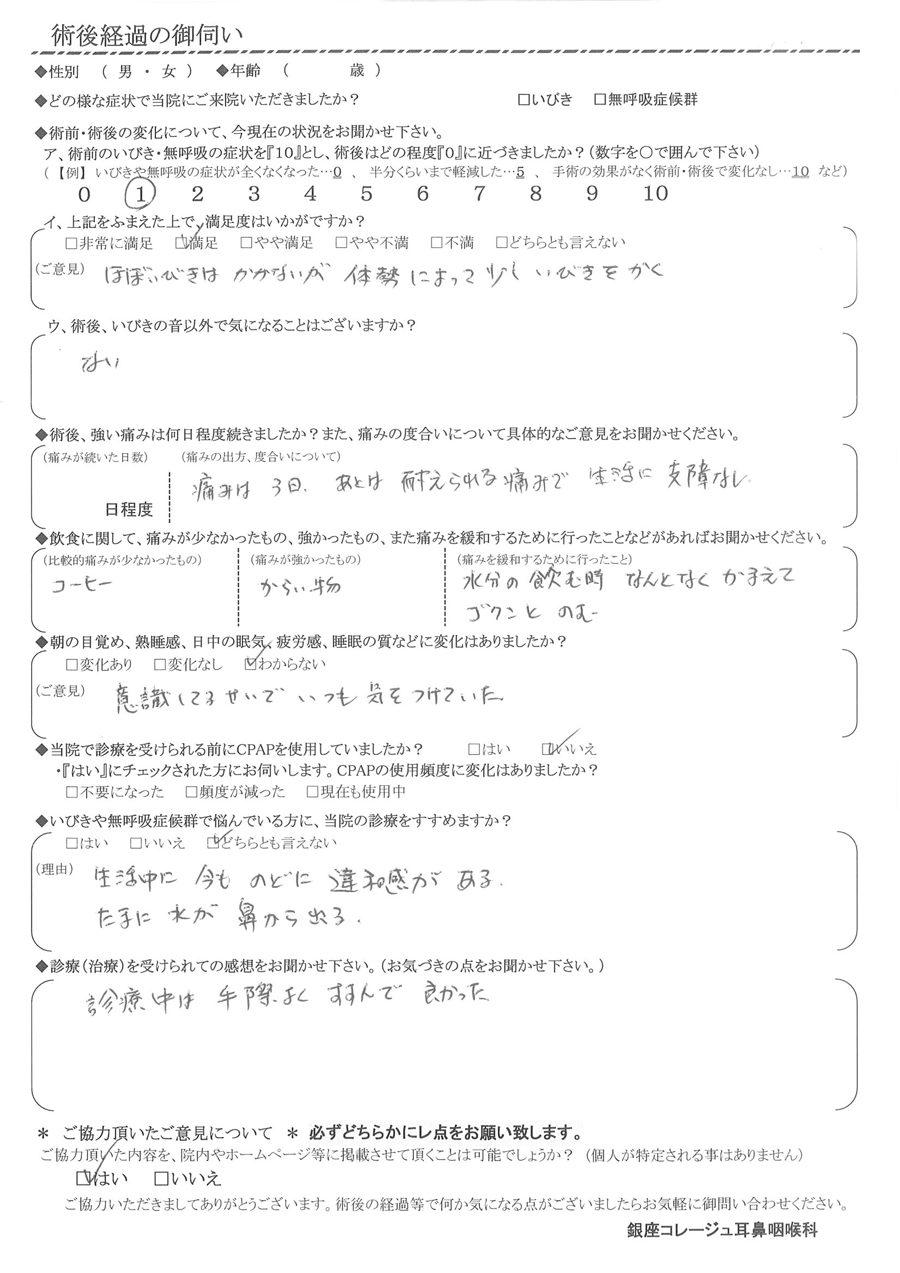 術後経過の御伺い
◆性別 （ 男 ・ 女 ） ◆年齢 （ 歳 ）
◆どの様な症状で当院にご来院いただきましたか？ □いびき □無呼吸症候群
◆術前・術後の変化について、今現在の状況をお聞かせ下さい。
ア、術前のいびき・無呼吸の症状を『10』とし、術後はどの程度『0』に近づきましたか？（数字を〇で囲んで下さい）
（【例】 いびきや無呼吸の症状が全くなくなった…0 、 半分くらいまで軽減した…5 、 手術の効果がなく術前・術後で変化なし…10 など）
0 1 2 3 4 5 6 7 8 9 10
イ、上記をふまえた上で、満足度はいかがですか？
□非常に満足 ☑満足 □やや満足 □やや不満 □不満 □どちらとも言えない
（ご意見） ほぼいびきは かかないが 体勢によって少しいびきをかく
ウ、術後、いびきの音以外で気になることはございますか？
ない
◆術後、強い痛みは何日程度続きましたか？また、痛みの度合いについて具体的なご意見をお聞かせください。
（痛みが続いた日数） （痛みの出方、度合いについて）
痛みは 3日. あとは 耐えられる痛みで 生活に 支障なし
日程度
◆飲食に関して、痛みが少なかったもの、強かったもの、また痛みを緩和するために行ったことなどがあればお聞かせください。
（比較的痛みが少なかったもの） （痛みが強かったもの） （痛みを緩和するために行ったこと）
コーヒー からい物 水分の飲む時 なんとなく かまえて
ゴクンと のむ
◆朝の目覚め、熟睡感、日中の眠気、疲労感、睡眠の質などに変化はありましたか？
□変化あり □変化なし ☑わからない
（ご意見） 意識してるせいで いつも 気をつけていた
◆当院で診療を受けられる前にCPAPを使用していましたか？ □はい ☑いいえ
・『はい』にチェックされた方にお伺いします。CPAPの使用頻度に変化はありましたか？
□不要になった □頻度が減った □現在も使用中
◆いびきや無呼吸症候群で悩んでいる方に、当院の診療をすすめますか？
□はい □いいえ ☑どちらとも言えない
（理由） 生活中に 今も のどに 違和感が ある.
たまに 水が 鼻から出る.
◆診療（治療）を受けられての感想をお聞かせ下さい。（お気づきの点をお聞かせ下さい。）
診療中は 手際よく すすんで 良かった
＊ ご協力頂いたご意見について ＊ 必ずどちらかにレ点をお願い致します。
ご協力頂いた内容を、院内やホームページ等に掲載させて頂くことは可能でしょうか？ （個人が特定される事はありません）
☑はい □いいえ
ご協力いただきましてありがとうございます。術後の経過等で何か気になる点がございましたらお気軽に御問い合わせください。
銀座コレージュ耳鼻咽喉科